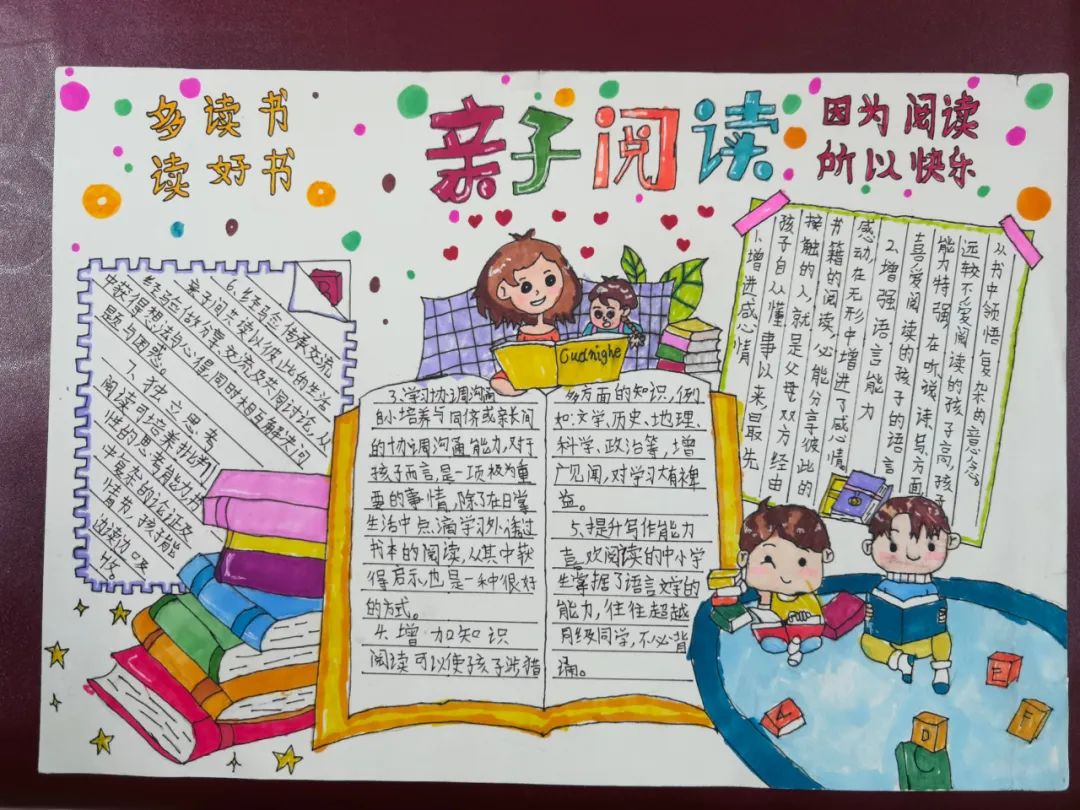 多读书
读好书
亲子阅读
因为阅读
所以快乐
1.增进感心情
孩子自从懂事以来最先
接触的人,就是父母双方,经由
书籍的阅读,必能分享彼此的
感动,在无形中增进了感心情。
2.增强语言能力
喜爱阅读的孩子的语言
能力特强,在听、说、读、写方面
远较不爱阅读的孩子高,孩子
从书中领悟复杂的意念。
Gudnighe
3.学习协调沟通
自小培养与同侪或亲长间
的协调沟通能力,对于
孩子而言,是一项极为重
要的事情,除了在日常
生活中点滴学习外,透过
书本的阅读,从其中获
得启示,也是一种很好
的方式。
4.增加知识
阅读可以使孩子涉猎
多方面的知识,例
如:文学、历史、地理、
科学、政治等,增
广见闻,对学习有裨
益。
5、提升写作能力
喜欢阅读的中小学
生掌握了语言文字的
能力,往往超越
同级同学,不必背
诵。
6.经验传承交流
亲子间共读以彼此的生活
经验做分享、交流及共同讨论,从
中获得想法与心得,同时相互解决问
题与困惑。
7、独立思考
阅读可培养批判
性的思考能力,书
中复杂的论证及
情节,孩子能
E
F
D
C